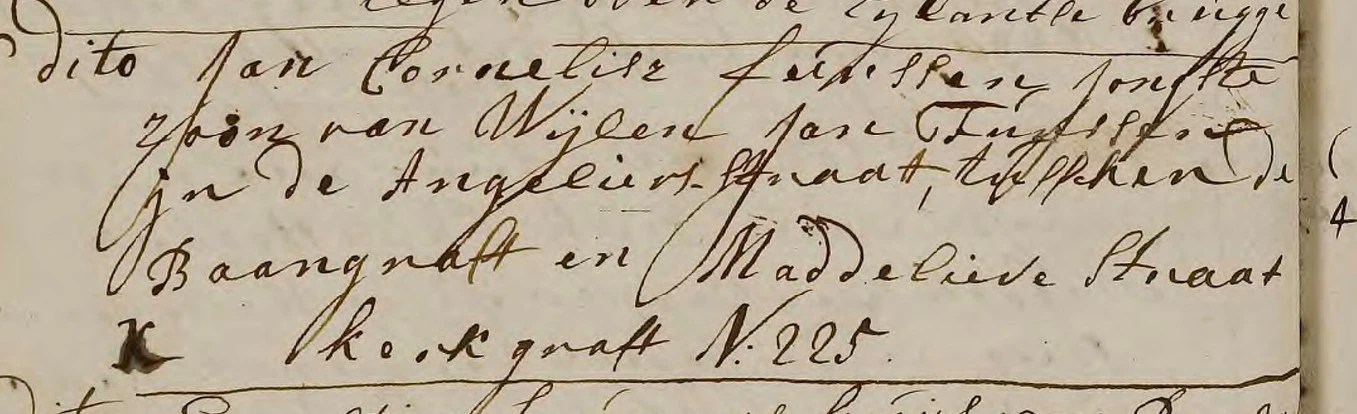 over de
dito Jan Cornelisz jongste
zoon van Wijlen Jan
jn de Angeliers-Straat, tusschen de
Baangraft en Maddelieve Straat
X kerk graft N: 225.